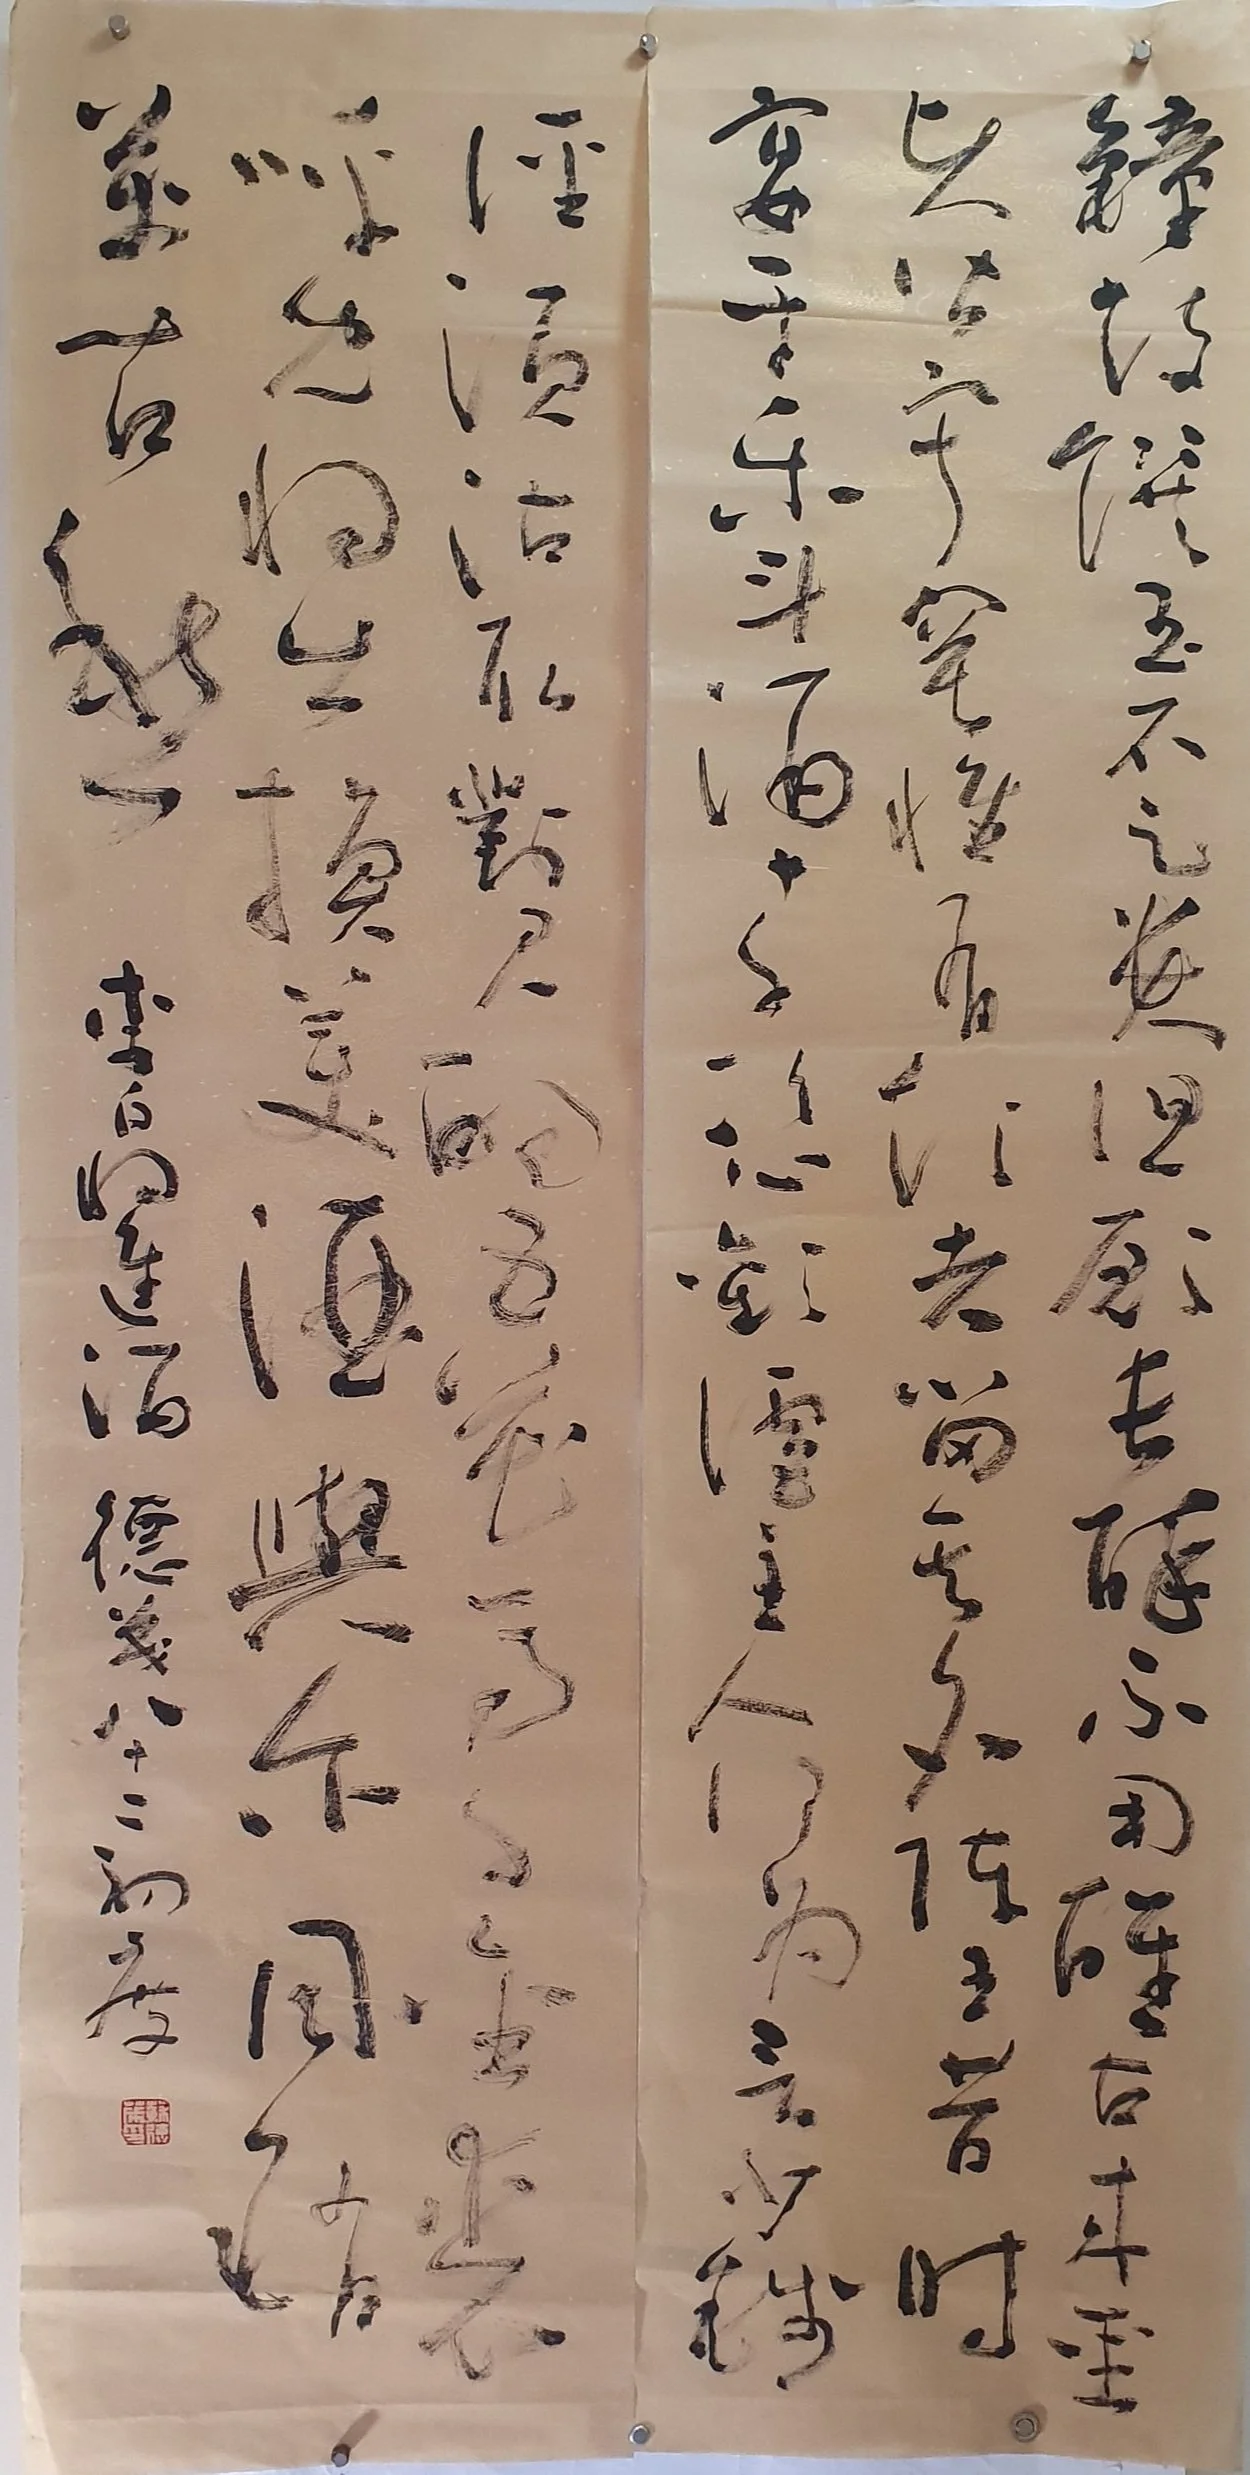 鐘鼓饌玉不足貴但願長醉不用醒古來聖
賢皆寂寞惟有飲者留其名陳王昔時
宴平樂斗酒十千恣歡謔主人何為言少錢
徑須沽取對君酌五花馬千金裘
呼兒將出換美酒與尔同銷
萬古愁 李白將進酒 德茂八十二初度